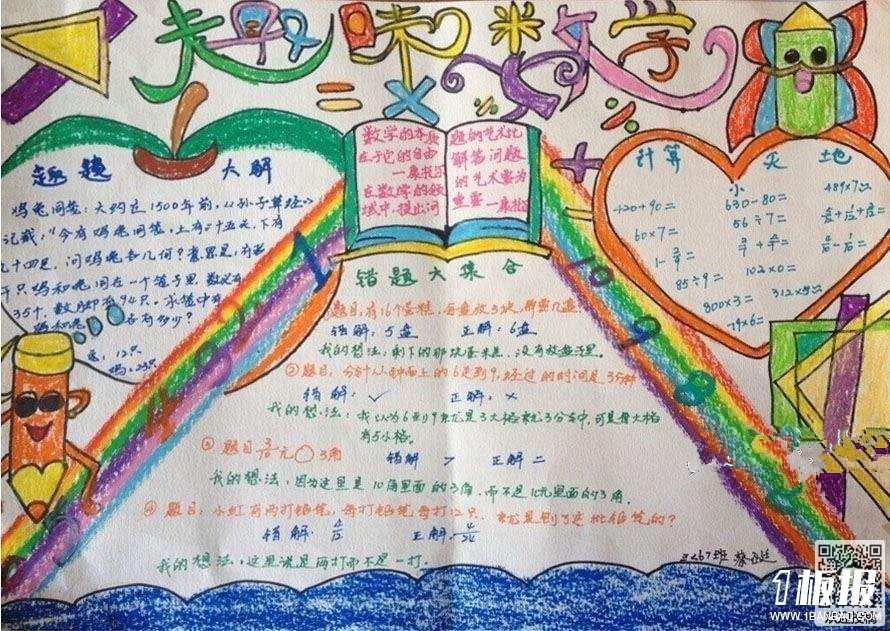 趣味数学
= × ÷ %
趣题 大解
鸡兔同笼：大约在1500年前，《孙子算经》
记载，"今有鸡兔同笼，上有三十五头，下有
九十四足，问鸡兔各几何？意思是，有若
干只鸡和兔同在一个笼子里，数头有
35个，数脚有94只，求笼中有
鸡和兔各有多少？
兔：12只
鸡：23只
数学的本质
在于它的自由
—康托尔
在数学的领
域中，提出问
题的艺术比
解答问题
的艺术更为
重要 —康托
计算 小 天地
420+90=
630-80=
489×7=
60×7=
56÷7=
85÷9=
102×0=
800×3=
312×5=
79×6=
错题大集合
题目，有16个蛋糕，每盘放3块，那需几盘
错解：5盘 正解：6盘
我的想法：剩下的那块蛋糕，没有放盘子里。
②题目，分针从钟面上的6走到9，经过的时间是35种
错解：√ 正解：×
我的想法：我以为6到9就是3大格就3分钟，可是每大格
有5小格。
③ 题目 元○3角
错解 > 正解 =
我的想法，因为这里是10角里面的3角，而不是1元里面的3角。
④题目，小红有两打铅笔，每打铅笔每打12只，
错解： 正解：4/24
我的想法，这里说是两打而不是一打。
1 2 3 4 5
10 9 8
三〈6〉班
1板报
WWW.1BANBAO.COM